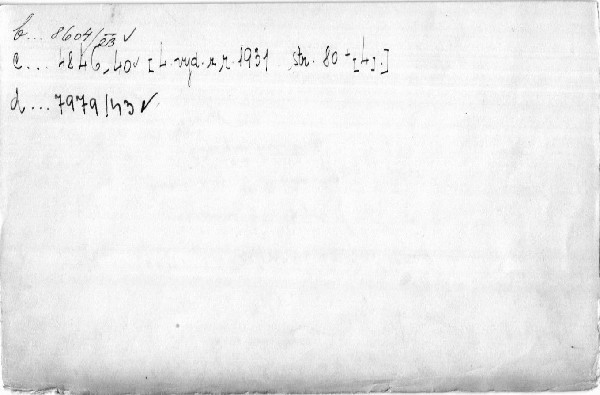 b... 8604/23 ✓
c... 4846,40✓ [4. vyd. z r. 1931 str. 80+[4].]
d... 7979/43 ✓